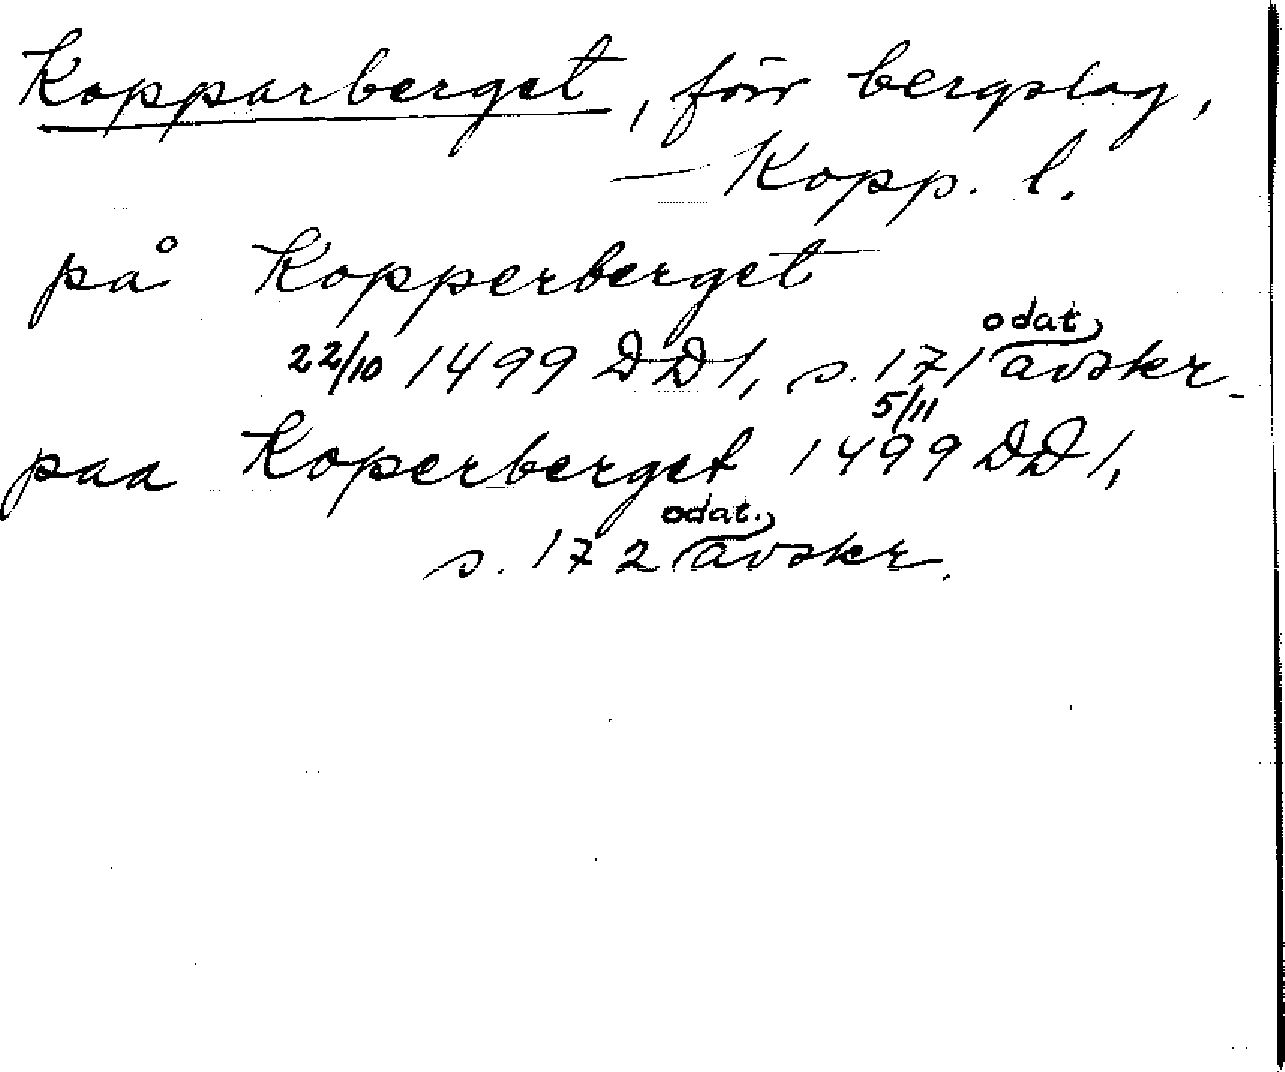 Kopparberget, förr bergslag,
— Kopp. l.
på Kopperberget
22/10 1499 DD 1, s. 171 odat. avskr.
paa Koperberget 5/11 1499 DD 1,
s. 172 odat. avskr.